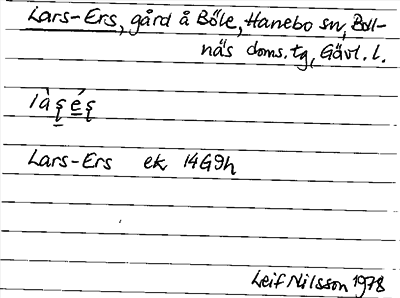 Lars-Ers, gård å Böle, Hanebo sn, Boll-
näs doms.tg, Gävl. l.
làş éş
Lars-Ers ek 14G9h
Leif Nilsson 1978